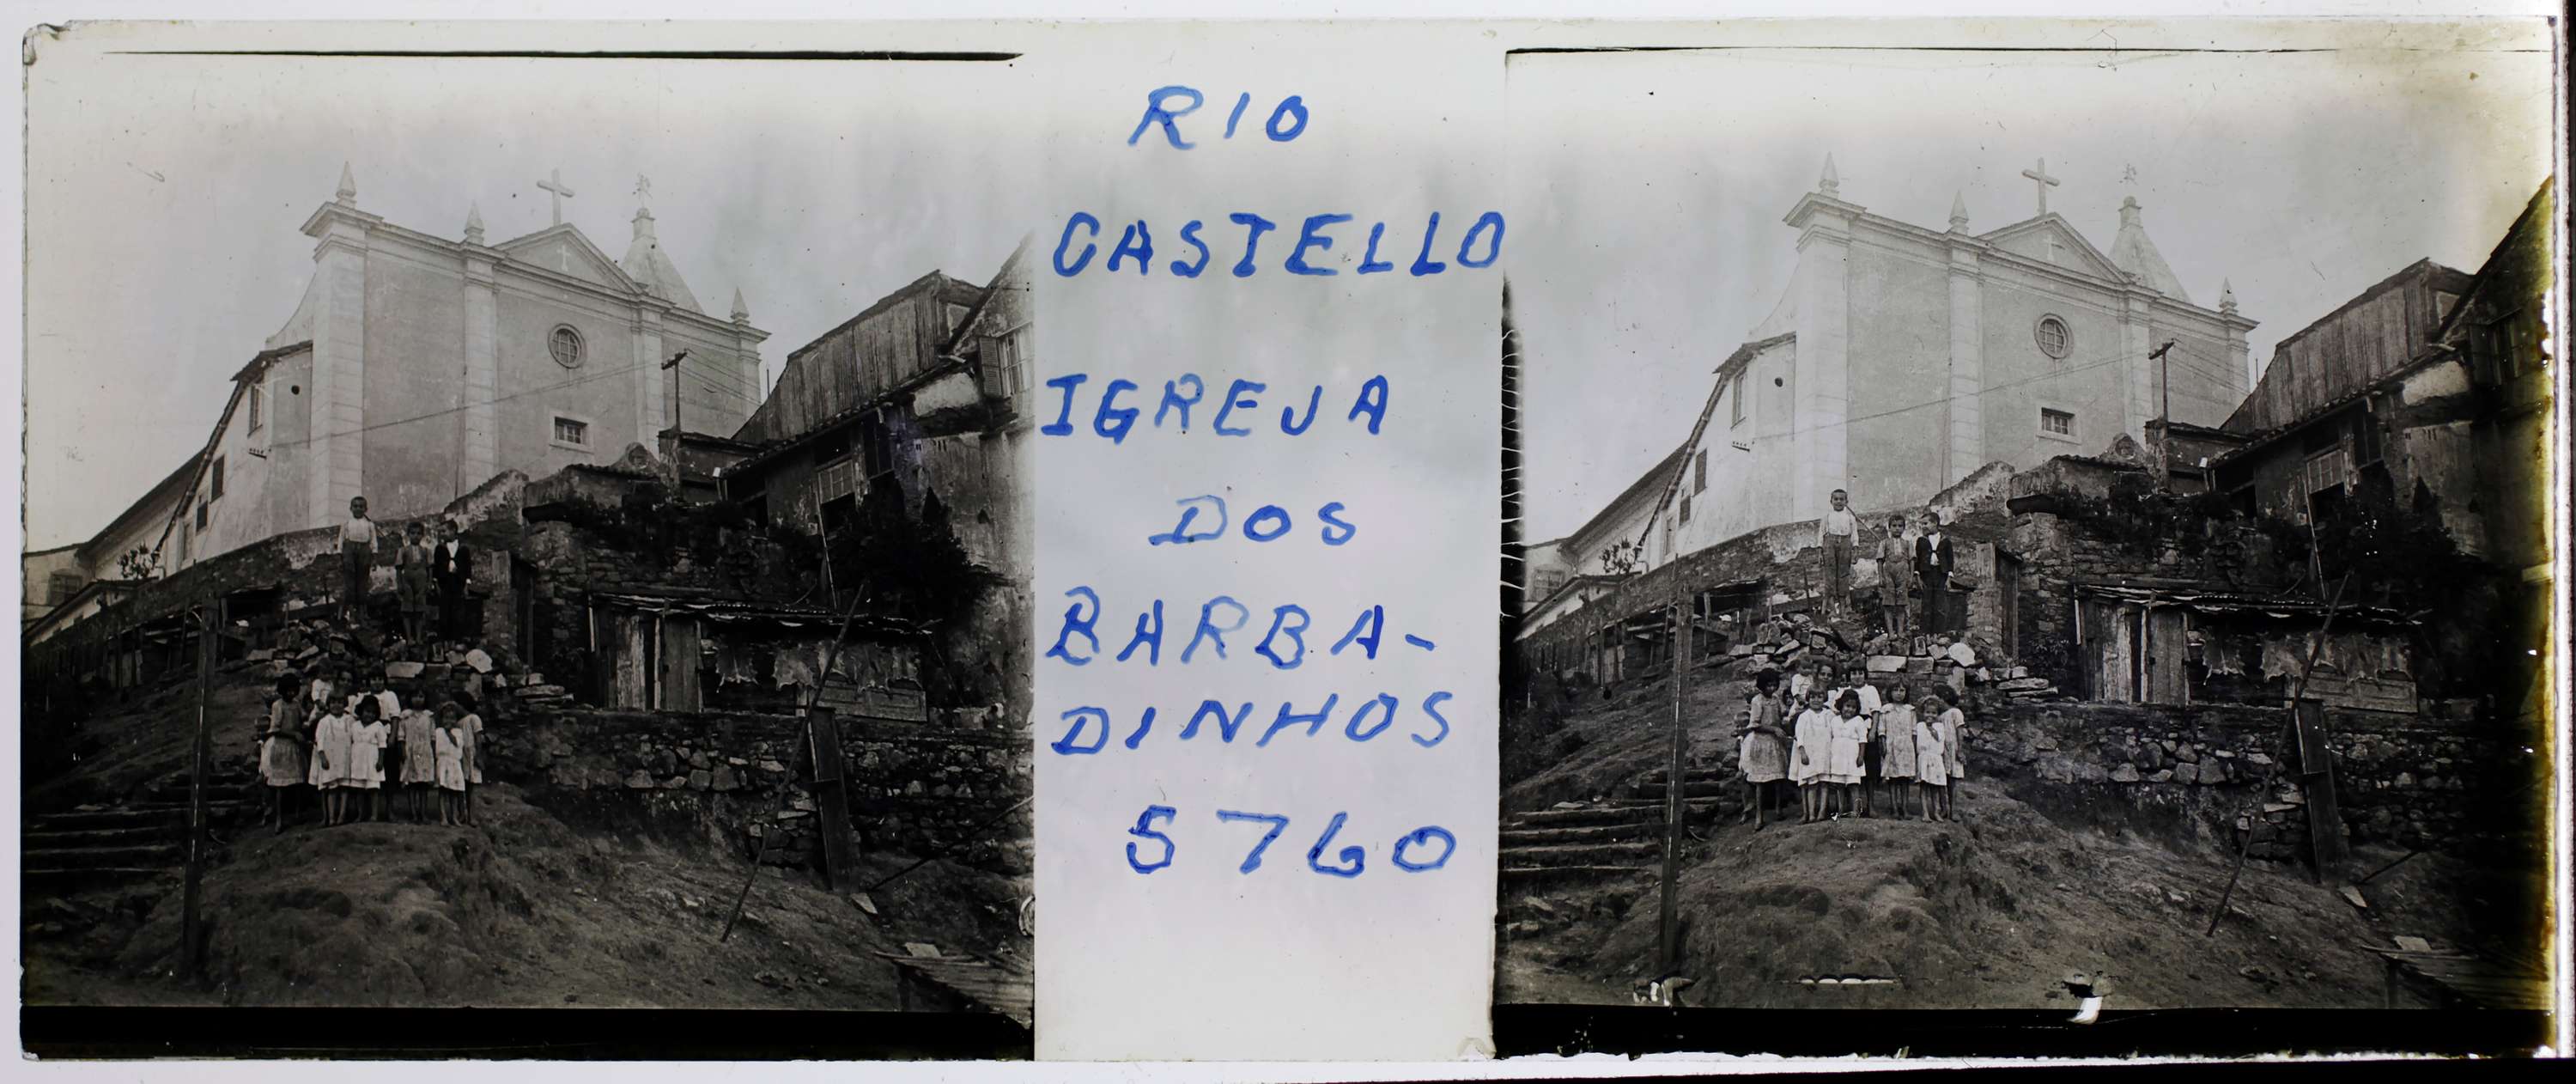 RIO
CASTELLO
IGREJA
DOS
BARBA-
DINHOS
5760